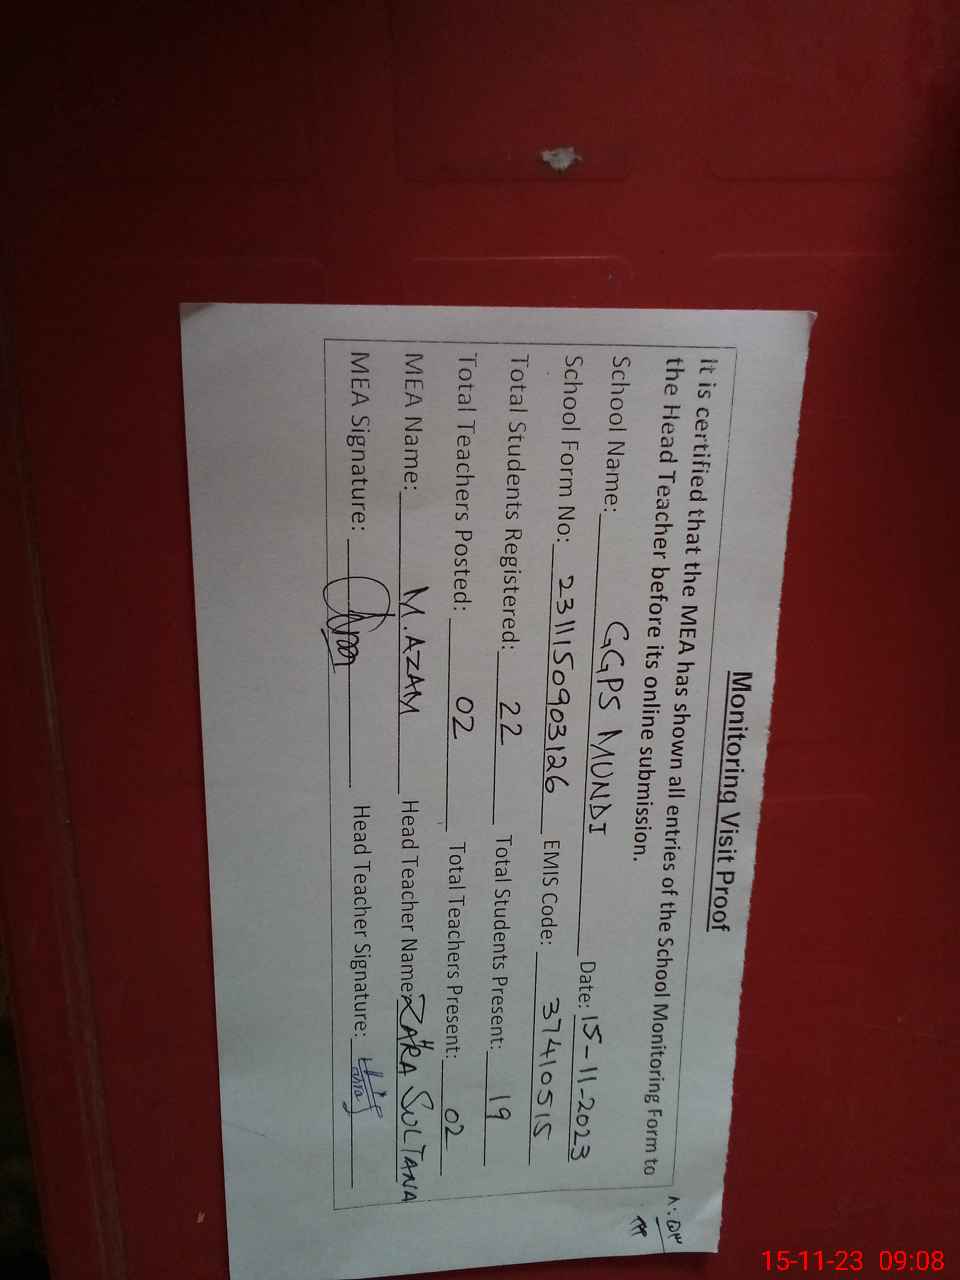 Monitoring Visit Proof
It is certified that the MEA has shown all entries of the School Monitoring Form to
the Head Teacher before its online submission.
School Name: GGPS MUNDI Date: 15-11-2023
School Form No: 2311150903126 EMIS Code: 37410515
Total Students Registered: 22 Total Students Present: 19
Total Teachers Posted: 02 Total Teachers Present: 02
MEA Name: M.AZAM Head Teacher Name: ZAHRA SULTANA
MEA Signature: Head Teacher Signature:
15-11-23 09:08